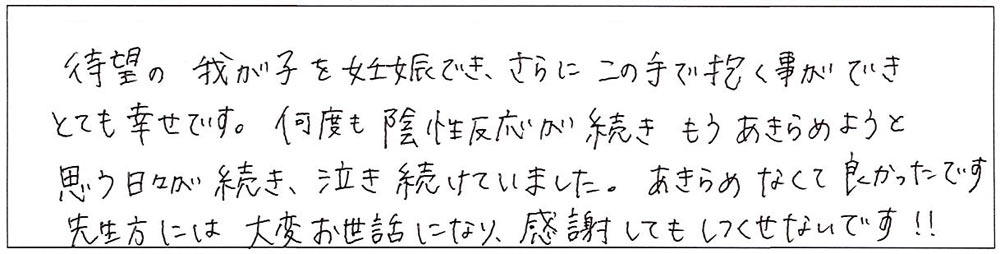 待望の 我が子を妊娠でき、さらに この手で抱く事ができ
とても幸せです。何度も 陰性反応が 続き もうあきらめようと
思う日々が 続き、泣き続けていました。あきらめなくて良かったです
先生方には 大変お世話になり、感謝してもしつくせないです!!